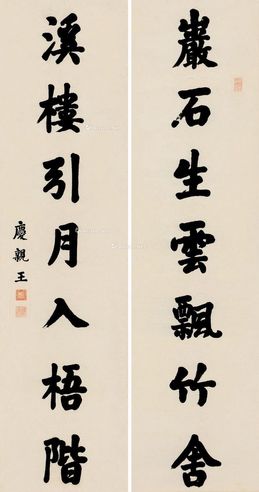 巖石生雲飄竹舍
溪樓引月入梧階
慶親王